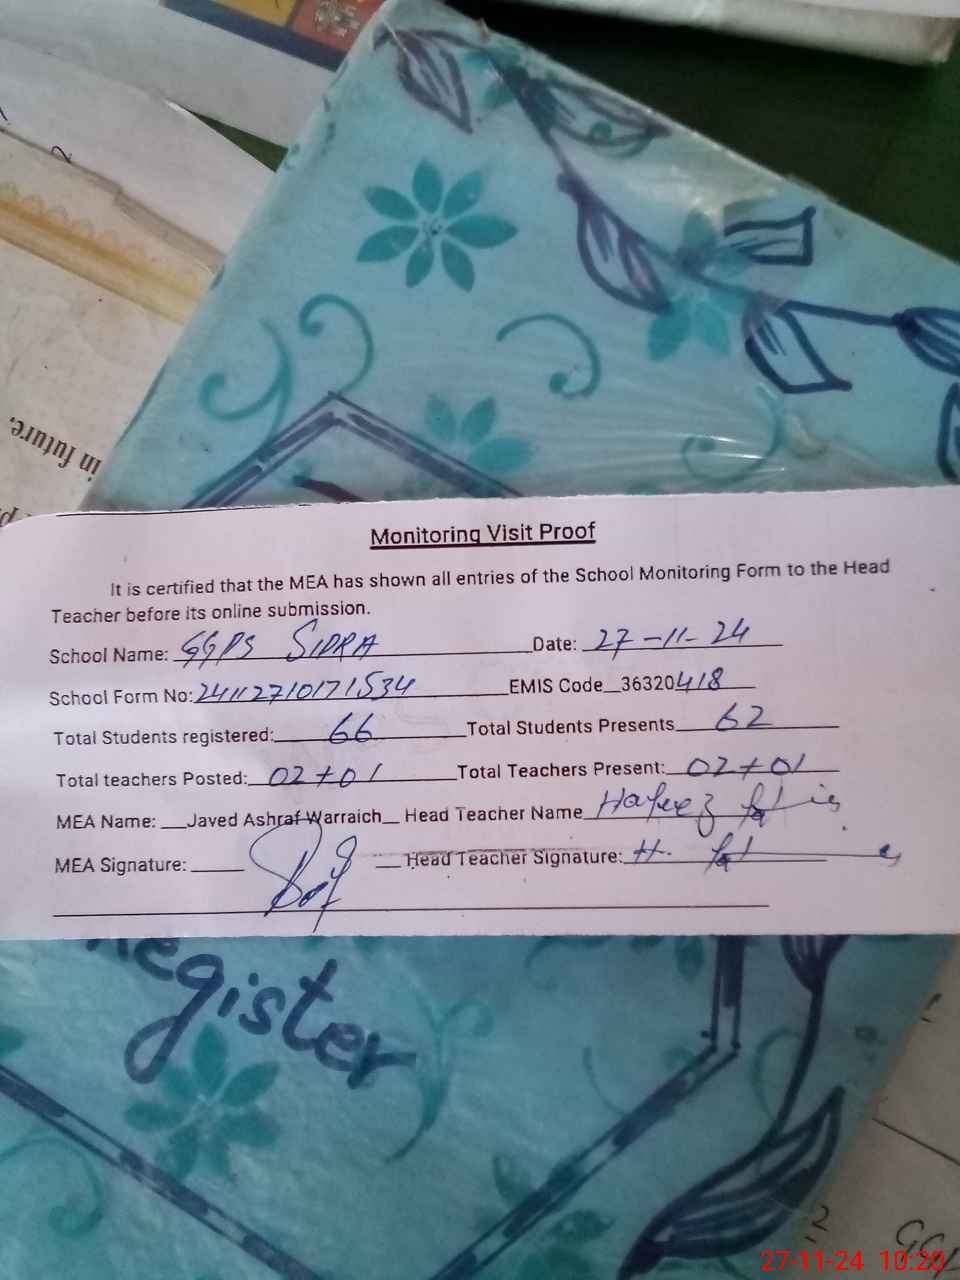 in future.
Monitoring Visit Proof
It is certified that the MEA has shown all entries of the School Monitoring Form to the Head
Teacher before its online submission.
School Name: GGPS SIDRA Date: 27-11-24
School Form No: 24112710171534 EMIS Code 36320418
Total Students registered: 66 Total Students Presents 62
Total teachers Posted: 02+01 Total Teachers Present: 02+01
MEA Name: Javed Ashraf Warraich Head Teacher Name Hafeez
MEA Signature: Head Teacher Signature: H.
Register
2
27-11-24 10:20